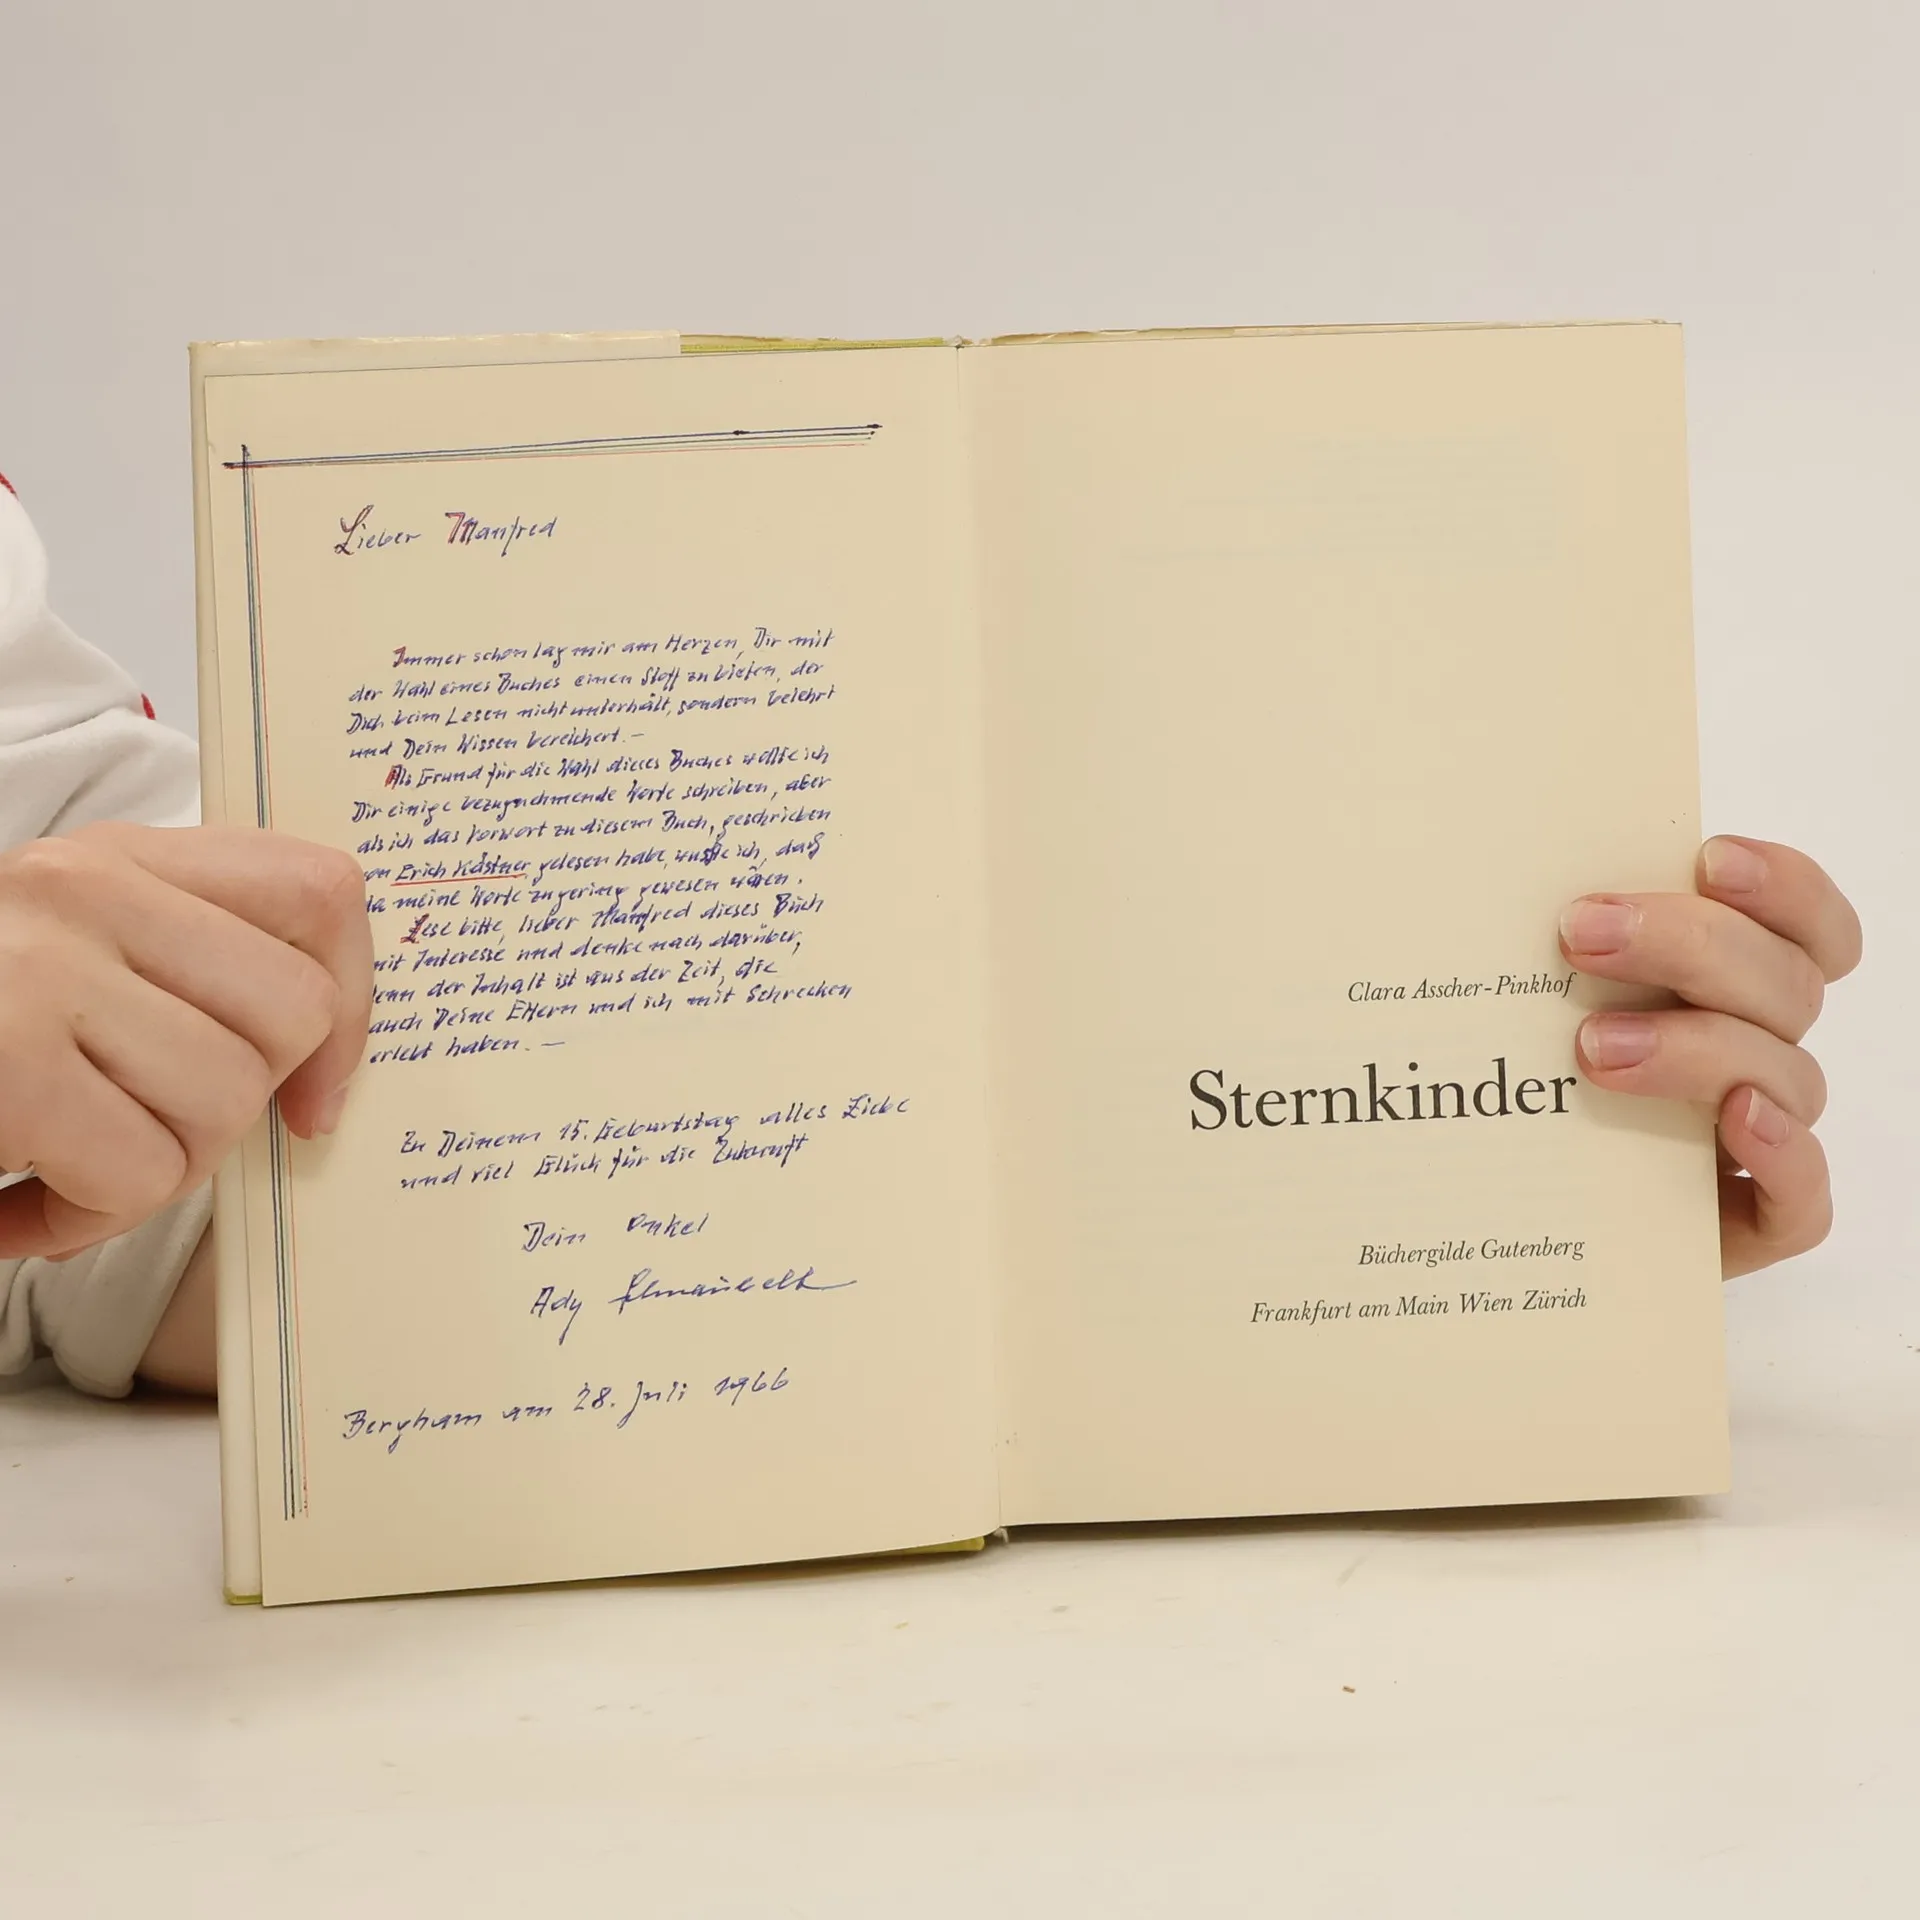 Lieber Manfred
Immer schon lag mir am Herzen, Dir mit
der Wahl eines Buches einen Stoff zu bieten, der
Dich beim Lesen nicht unterhält, sondern belehrt
und Dein Wissen bereichert.—
Als Grund für die Wahl dieses Buches wollte ich
Dir einige bezugnehmende Worte schreiben, aber
als ich das Vorwort zu diesem Buch, geschrieben
von Erich Kästner gelesen habe, wußte ich, daß
da meine Worte zu gering gewesen wären.
Lese bitte, lieber Manfred dieses Buch
mit Interesse und denke nach darüber,
denn der Inhalt ist aus der Zeit, die
auch Deine Eltern und ich mit Schrecken
erlebt haben.—
Zu Deinem 15. Geburtstag alles Liebe
und viel Glück für die Zukunft
Dein Onkel
Ady
Bergham am 28. Juli 1966
Clara Asscher-Pinkhof
Sternkinder
Büchergilde Gutenberg
Frankfurt am Main Wien Zürich